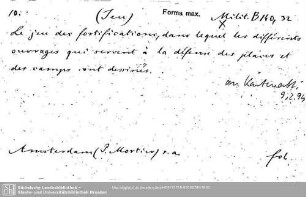 10. (Jeu) Forma max. Milit. B 160, 32
Le jeu des fortifications, dans lequel les différents
ouvrages qui servent à la défense des places et
des camps sont dessinés.
9.2.94
Amsterdam (P. Mortier) s.a. fol.
Sächsische Landesbibliothek -
Staats- und Universitätsbibliothek Dresden